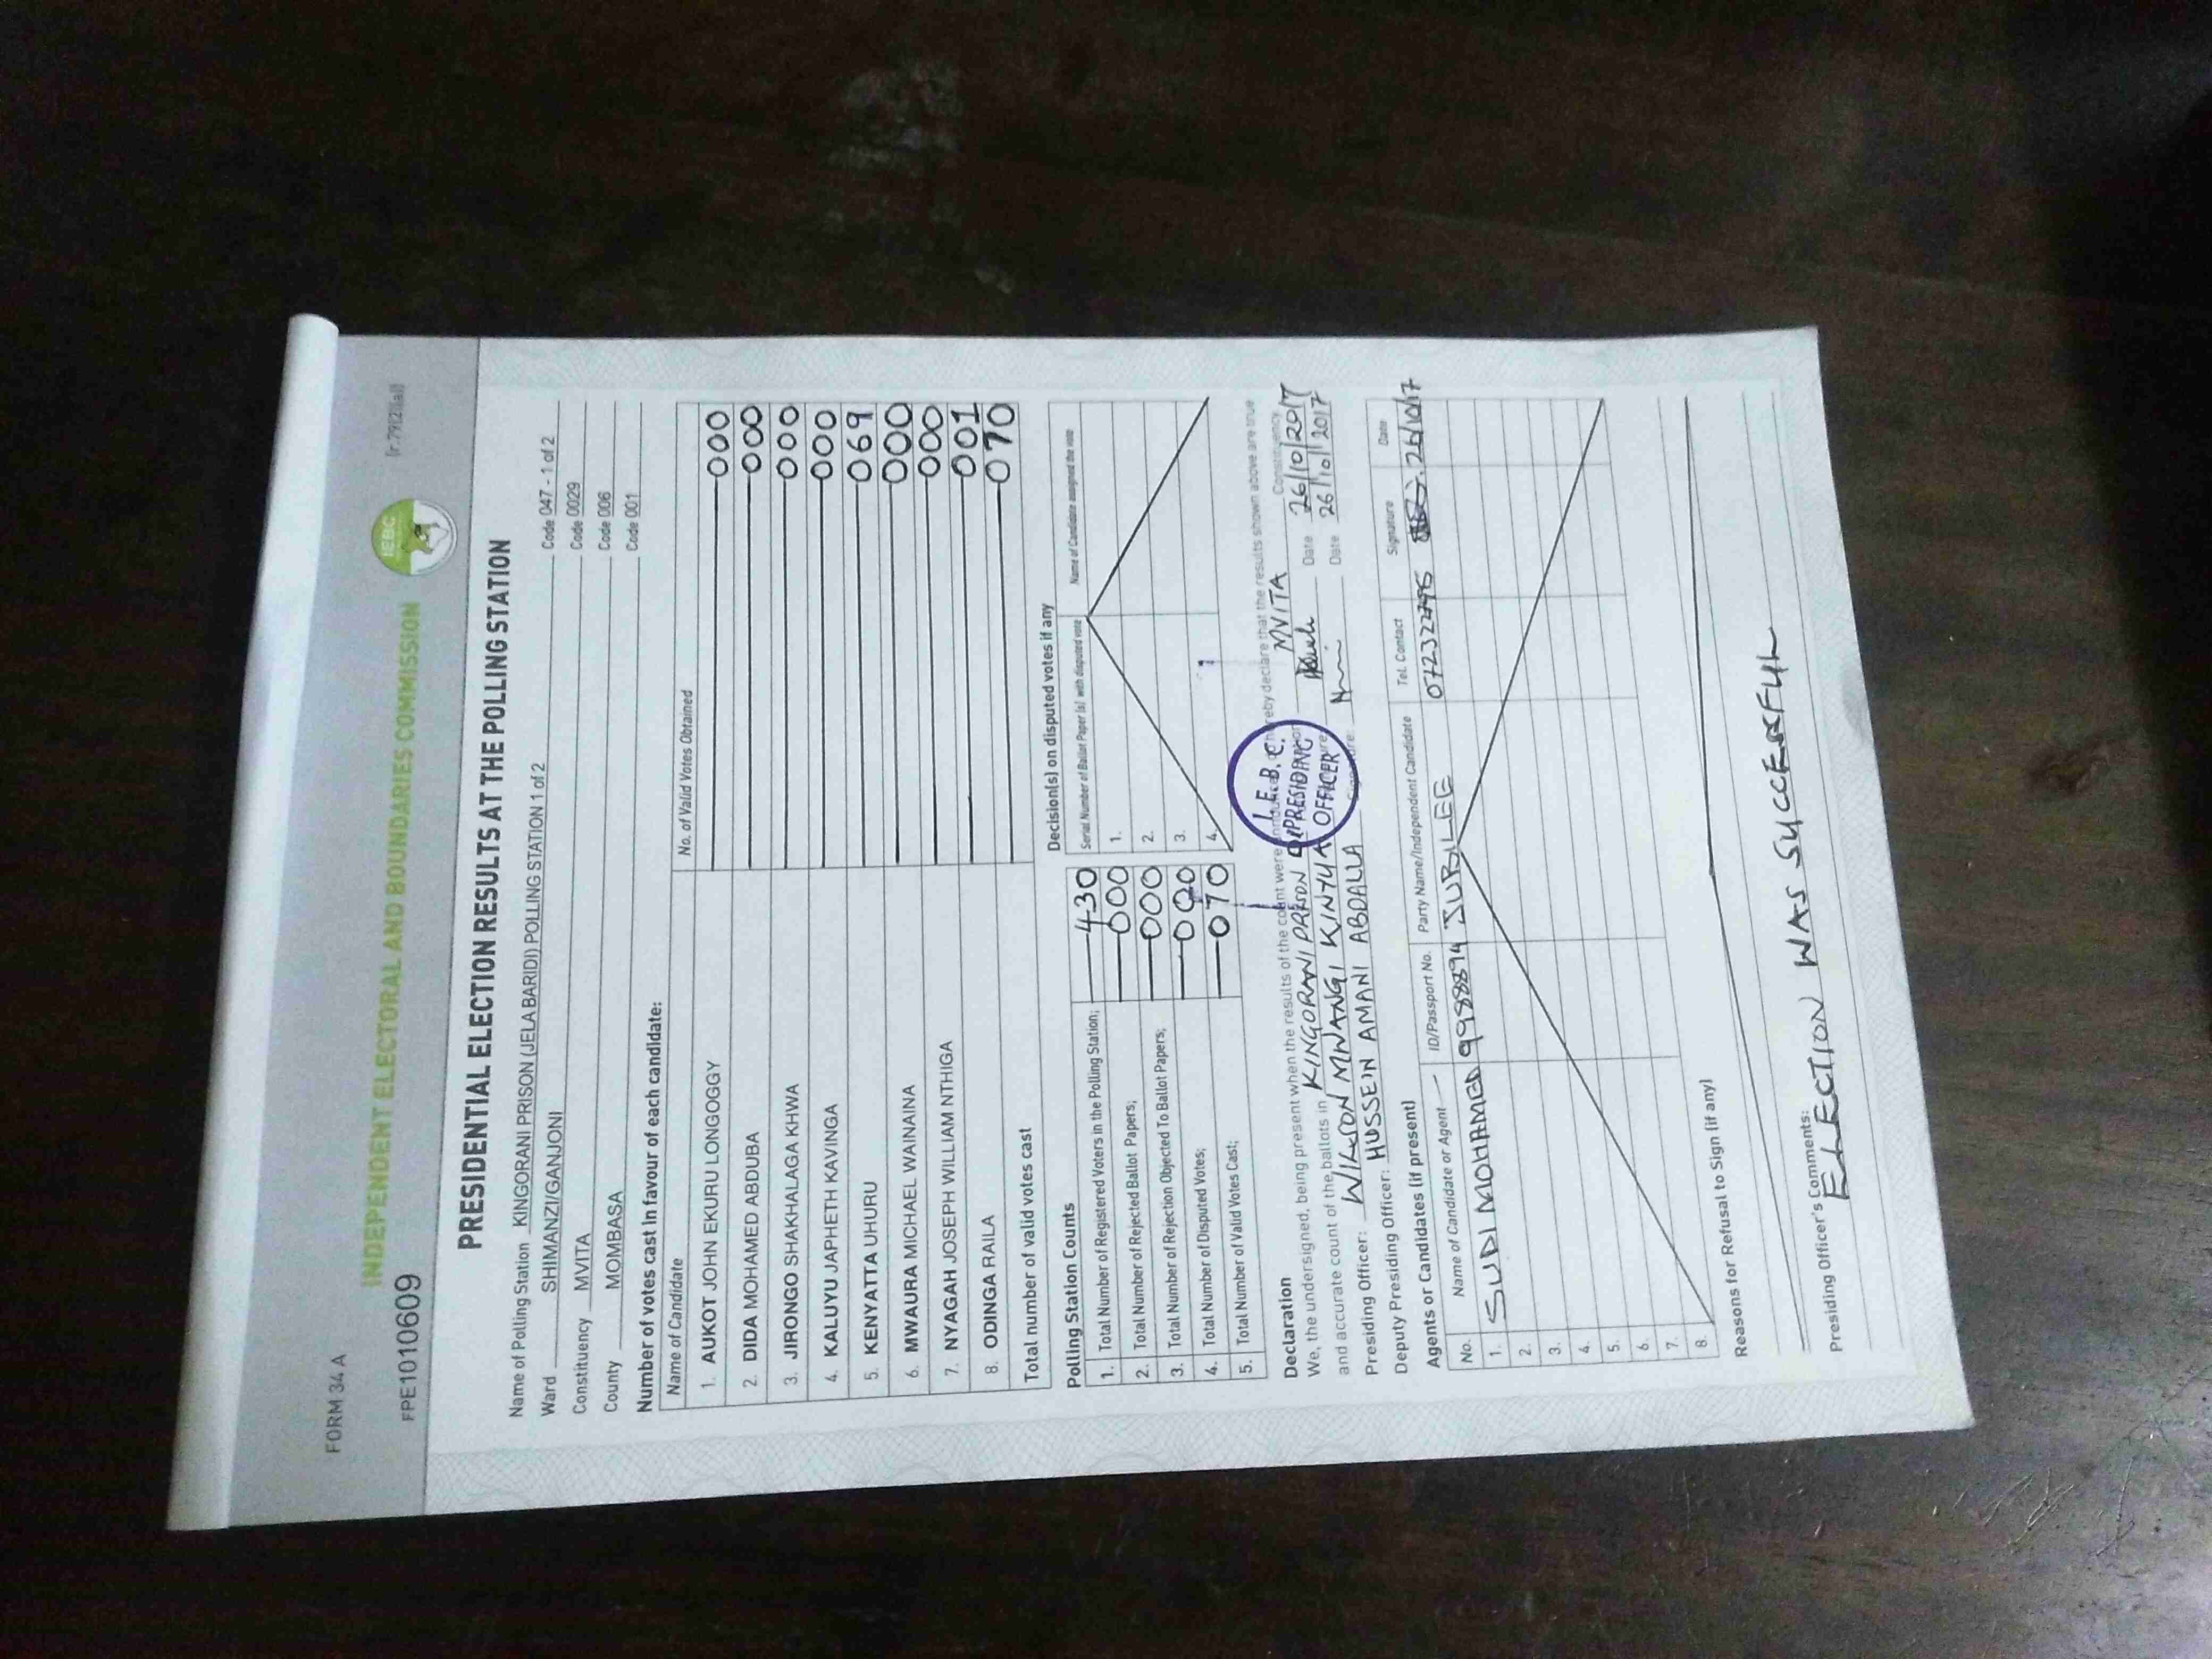 FORM 34 A
(r.79(2)(a))
INDEPENDENT ELECTORAL AND BOUNDARIES COMMISSION
IEBC
FPE1010609
PRESIDENTIAL ELECTION RESULTS AT THE POLLING STATION
Name of Polling Station KINGORANI PRISON (JELA BARIDI) POLLING STATION 1 of 2 Code 047 - 1 of 2
Ward SHIMANZI/GANJONI Code 0029
Constituency MVITA Code 006
County MOMBASA Code 001
Number of votes cast in favour of each candidate:
Name of Candidate No. of Valid Votes Obtained
1. AUKOT JOHN EKURU LONGOGGY 000
2. DIDA MOHAMED ABDUBA 000
3. JIRONGO SHAKHALAGA KHWA 000
4. KALUYU JAPHETH KAVINGA 000
5. KENYATTA UHURU 069
6. MWAURA MICHAEL WAINAINA 000
7. NYAGAH JOSEPH WILLIAM NTHIGA 000
8. ODINGA RAILA 001
Total number of valid votes cast 070
Polling Station Counts
1. Total Number of Registered Voters in the Polling Station; 430
2. Total Number of Rejected Ballot Papers; 000
3. Total Number of Rejection Objected To Ballot Papers; 000
4. Total Number of Disputed Votes; 000
5. Total Number of Valid Votes Cast; 070
Decision(s) on disputed votes if any
Serial Number of Ballot Paper (s) with disputed vote Name of Candidate assigned the vote
1.
2.
3.
4.
Declaration
We, the undersigned, being present when the results of the count were announced, hereby declare that the results shown above are true
and accurate count of the ballots in KINGORANI PRISON MVITA Constituency
Presiding Officer: WILKSON MWANGI KINTUA Date 26/10/2017
Deputy Presiding Officer: HUSSEIN AMANI ABDALLA Signature: Date 26/10/2017
I.E.B.C.
PRESIDING
OFFICER
Agents or Candidates (if present)
No. Name of Candidate or Agent ID/Passport No. Party Name/Independent Candidate Tel. Contact Signature Date
1. SUDI MOHAMED 9988894 JUBILEE 26/10/17
2.
3.
4.
5.
6.
7.
8.
Reasons for Refusal to Sign (if any)
Presiding Officer's Comments:
ELECTION WAS SUCCESSFUL